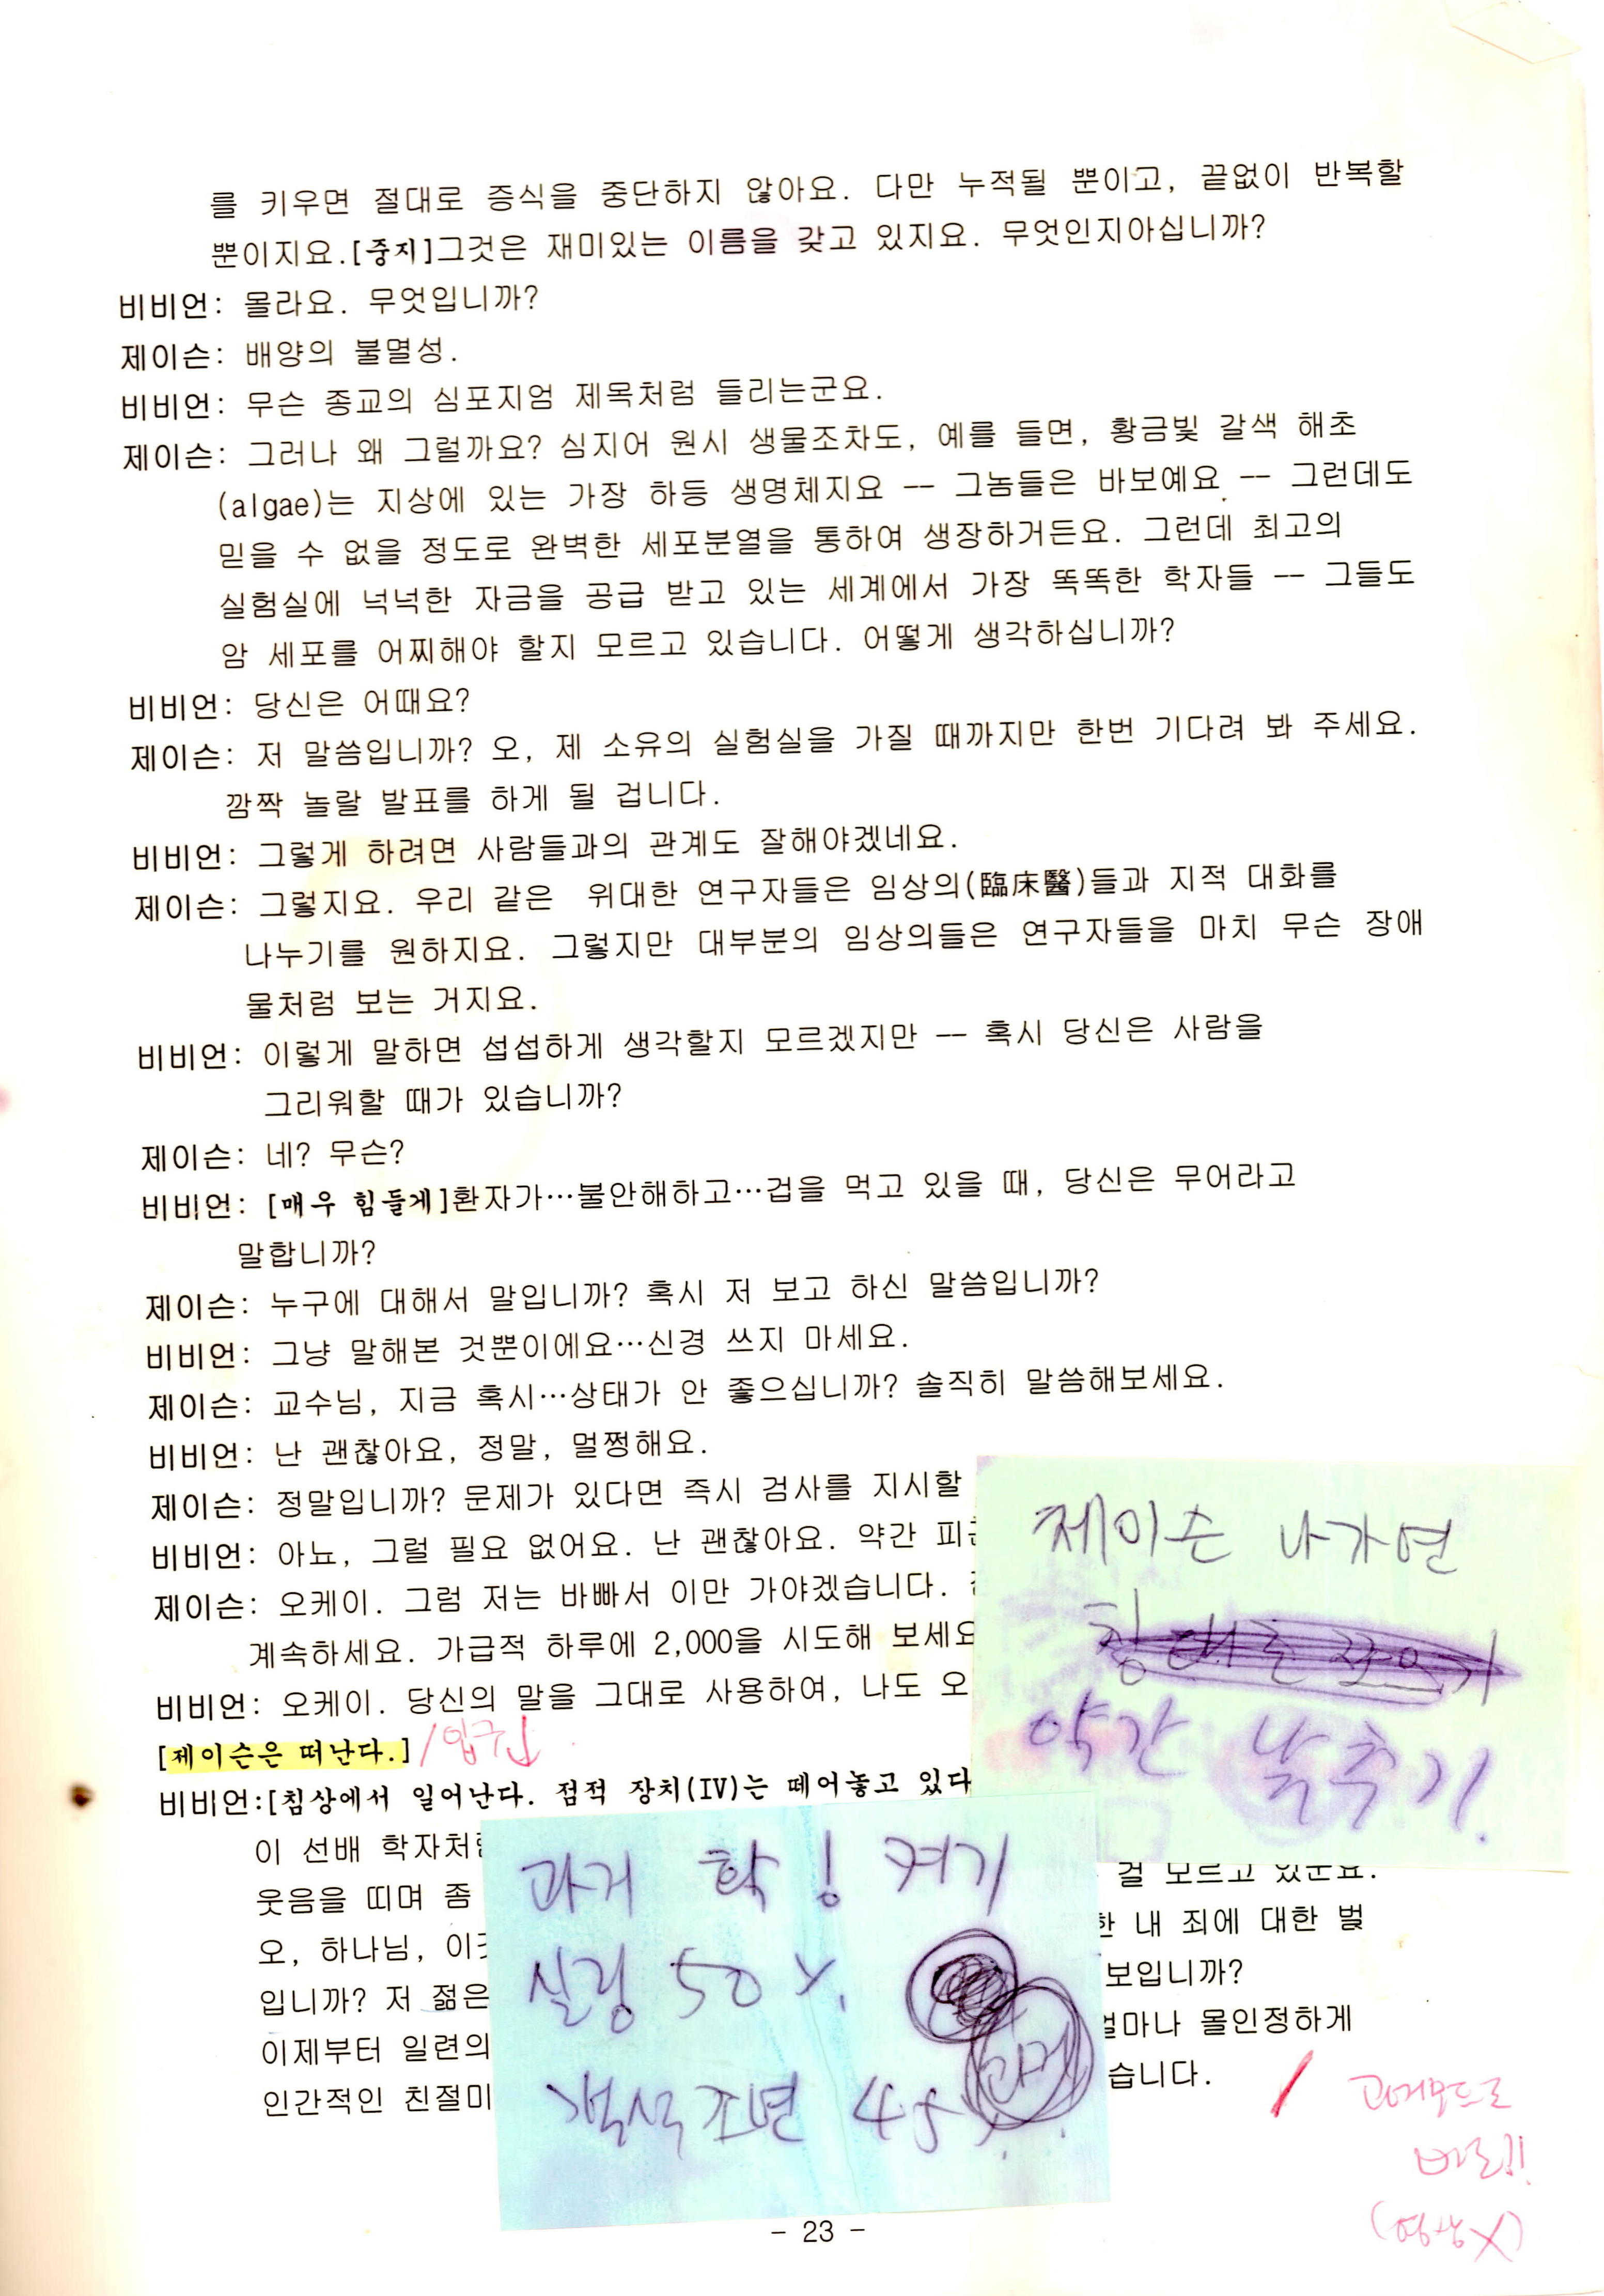 를 키우면 절대로 증식을 중단하지 않아요. 다만 누적될 뿐이고, 끝없이 반복할
뿐이지요.[중지]그것은 재미있는 이름을 갖고 있지요. 무엇인지아십니까?
비비언: 몰라요. 무엇입니까?
제이슨: 배양의 불멸성.
비비언: 무슨 종교의 심포지엄 제목처럼 들리는군요.
제이슨: 그러나 왜 그럴까요? 심지어 원시 생물조차도, 예를 들면, 황금빛 갈색 해초
(algae)는 지상에 있는 가장 하등 생명체지요 -- 그놈들은 바보예요 -- 그런데도
믿을 수 없을 정도로 완벽한 세포분열을 통하여 생장하거든요. 그런데 최고의
실험실에 넉넉한 자금을 공급 받고 있는 세계에서 가장 똑똑한 학자들 -- 그들도
암 세포를 어찌해야 할지 모르고 있습니다. 어떻게 생각하십니까?
비비언: 당신은 어때요?
제이슨: 저 말씀입니까? 오, 제 소유의 실험실을 가질 때까지만 한번 기다려 봐 주세요.
깜짝 놀랄 발표를 하게 될 겁니다.
비비언: 그렇게 하려면 사람들과의 관계도 잘해야겠네요.
제이슨: 그렇지요. 우리 같은 위대한 연구자들은 임상의(臨床醫)들과 지적 대화를
나누기를 원하지요. 그렇지만 대부분의 임상의들은 연구자들을 마치 무슨 장애
물처럼 보는 거지요.
비비언: 이렇게 말하면 섭섭하게 생각할지 모르겠지만 -- 혹시 당신은 사람을
그리워할 때가 있습니까?
제이슨: 네? 무슨?
비비언: [매우 힘들게]환자가…불안해하고…겁을 먹고 있을 때, 당신은 무어라고
말합니까?
제이슨: 누구에 대해서 말입니까? 혹시 저 보고 하신 말씀입니까?
비비언: 그냥 말해본 것뿐이에요…신경 쓰지 마세요.
제이슨: 교수님, 지금 혹시…상태가 안 좋으십니까? 솔직히 말씀해보세요.
비비언: 난 괜찮아요, 정말, 멀쩡해요.
제이슨: 정말입니까? 문제가 있다면 즉시 검사를 지시할
비비언: 아뇨, 그럴 필요 없어요. 난 괜찮아요. 약간
제이슨: 오케이. 그럼 저는 바빠서 이만 가야겠습니다.
계속하세요. 가급적 하루에 2,000을 시도해 보세요
비비언: 오케이. 당신의 말을 그대로 사용하여, 나도 오
[제이슨은 떠난다.] / 입구↓
비비언:[침상에서 일어난다. 점적 장치(IV)는 떼어놓고 있다
이 선배 학자처럼 걸 모르고 있군요.
웃음을 띠며 좀 한 내 죄에 대한 벌
오, 하나님, 입니까? 저 젊은 보입니까?
이제부터 일련의 얼마나 몰인정하게
인간적인 친절미 습니다. /
제이슨 나가면
약간 낮추기.
과거 확! 켜기
실링 50%.
객석조면 45%.
과거
과거무드로
바로!!
(영상X)
- 23 -